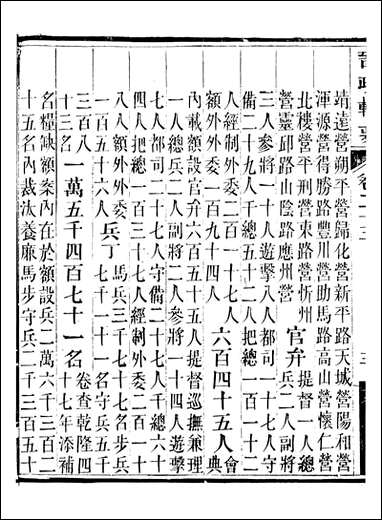 晉政輯要
卷二十三
三
靖遠營朔平營歸化營新平路天城營陽和營
渾源營得勝路豐川營助馬路高山營懷仁營
北樓營平刑營東路營忻州營
營靈邱路山陰路應州營
官弁
提督一人總
兵二人副將
三人參將一十人遊擊八人都司一十七人守
備二十九人千總五十二人把總一百一十二
人經制外委二百一十七人
額外外委一百九十四人
六百四十五人
會典
內載額設官弁六百五十五人提督巡撫兼理
一人總兵二人副將二人參將一十四人遊擊
七人都司二十七人守備二十七人千總六十
四人把總一百三十七人經制外委二百一十
八人額外外委一百五十六人
兵丁
馬兵三千七十七名步兵
一千一名守兵五千
三百八十三名
一萬五千四百七十一名
卷查乾隆四
十七年添補
名糧缺額案內在於額設兵二萬六千三百二
十五名內裁汰養廉馬步守兵二千三百五十